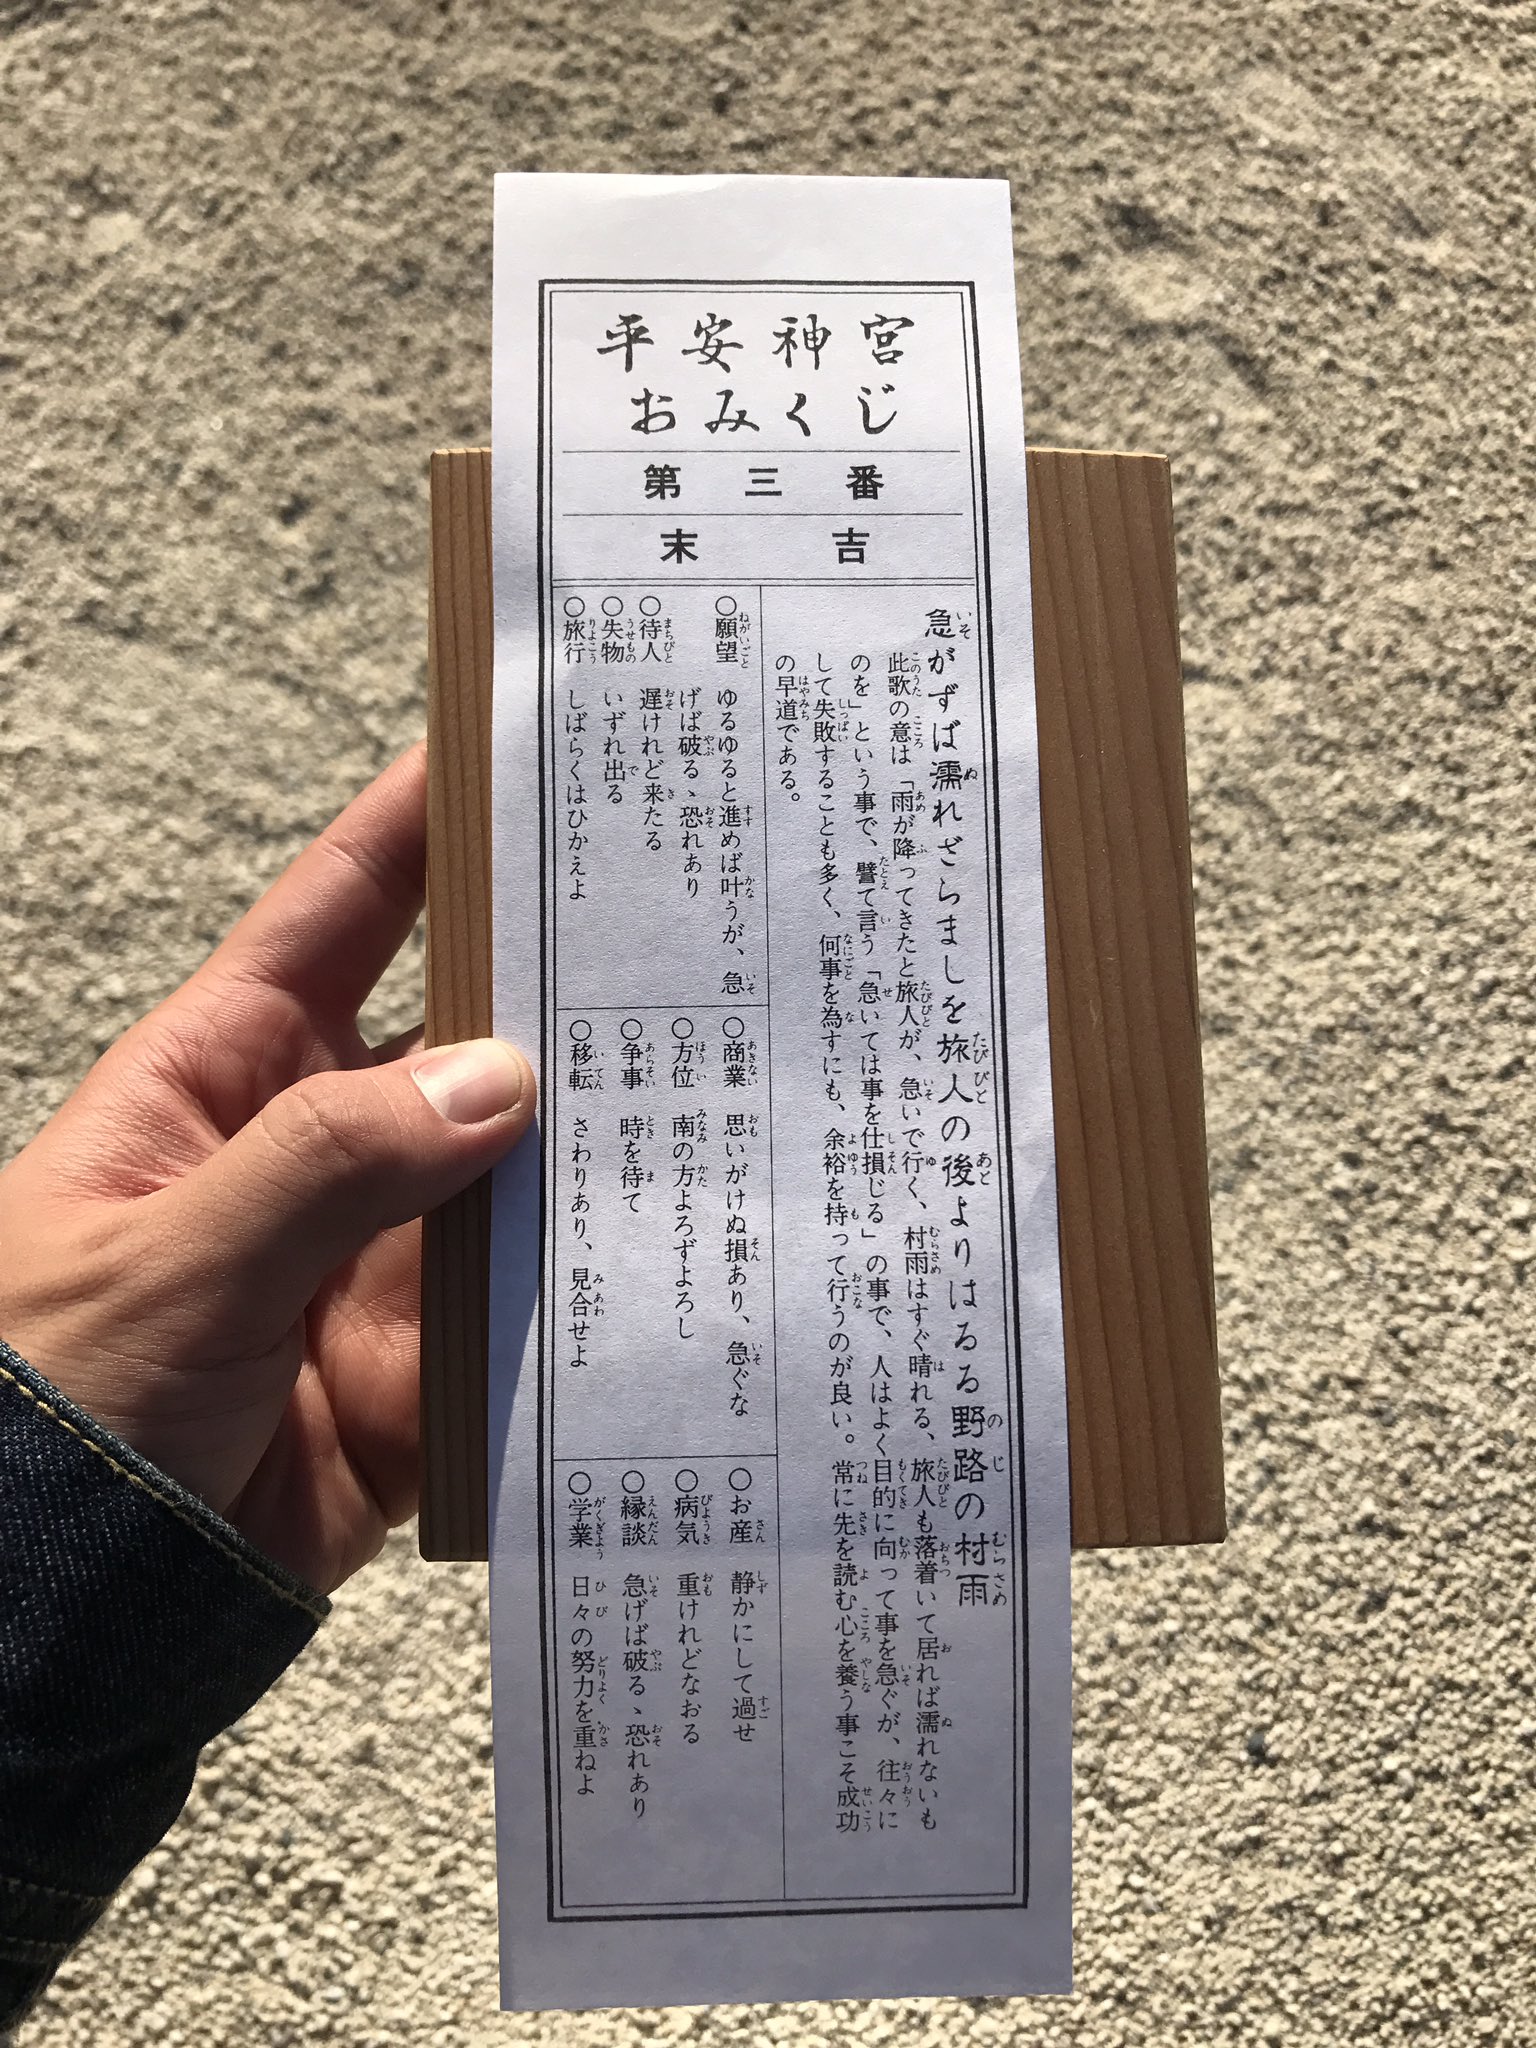 平安神宮
おみくじ
第三番
末吉
急がずば濡れざらましを旅人の後よりはるる野路の村雨
此歌の意は「雨が降ってきたと旅人が、急いで行く、村雨はすぐ晴れる、旅人も落着いて居れば濡れないも
のを」という事で、譬て言う「急いては事を仕損じる」の事で、人はよく目的に向って事を急ぐが、往々に
して失敗することも多く、何事を為すにも、余裕を持って行うのが良い。常に先を読む心を養う事こそ成功
の早道である。
○願望 ゆるゆると進めば叶うが、急
げば破るゝ恐れあり
○待人 遅けれど来たる
○失物 いずれ出る
○旅行 しばらくはひかえよ
○商業 思いがけぬ損あり、急ぐな
○方位 南の方よろずよろし
○争事 時を待て
○移転 さわりあり、見合せよ
○お産 静かにして過せ
○病気 重けれどなおる
○縁談 急げば破るゝ恐れあり
○学業 日々の努力を重ねよ